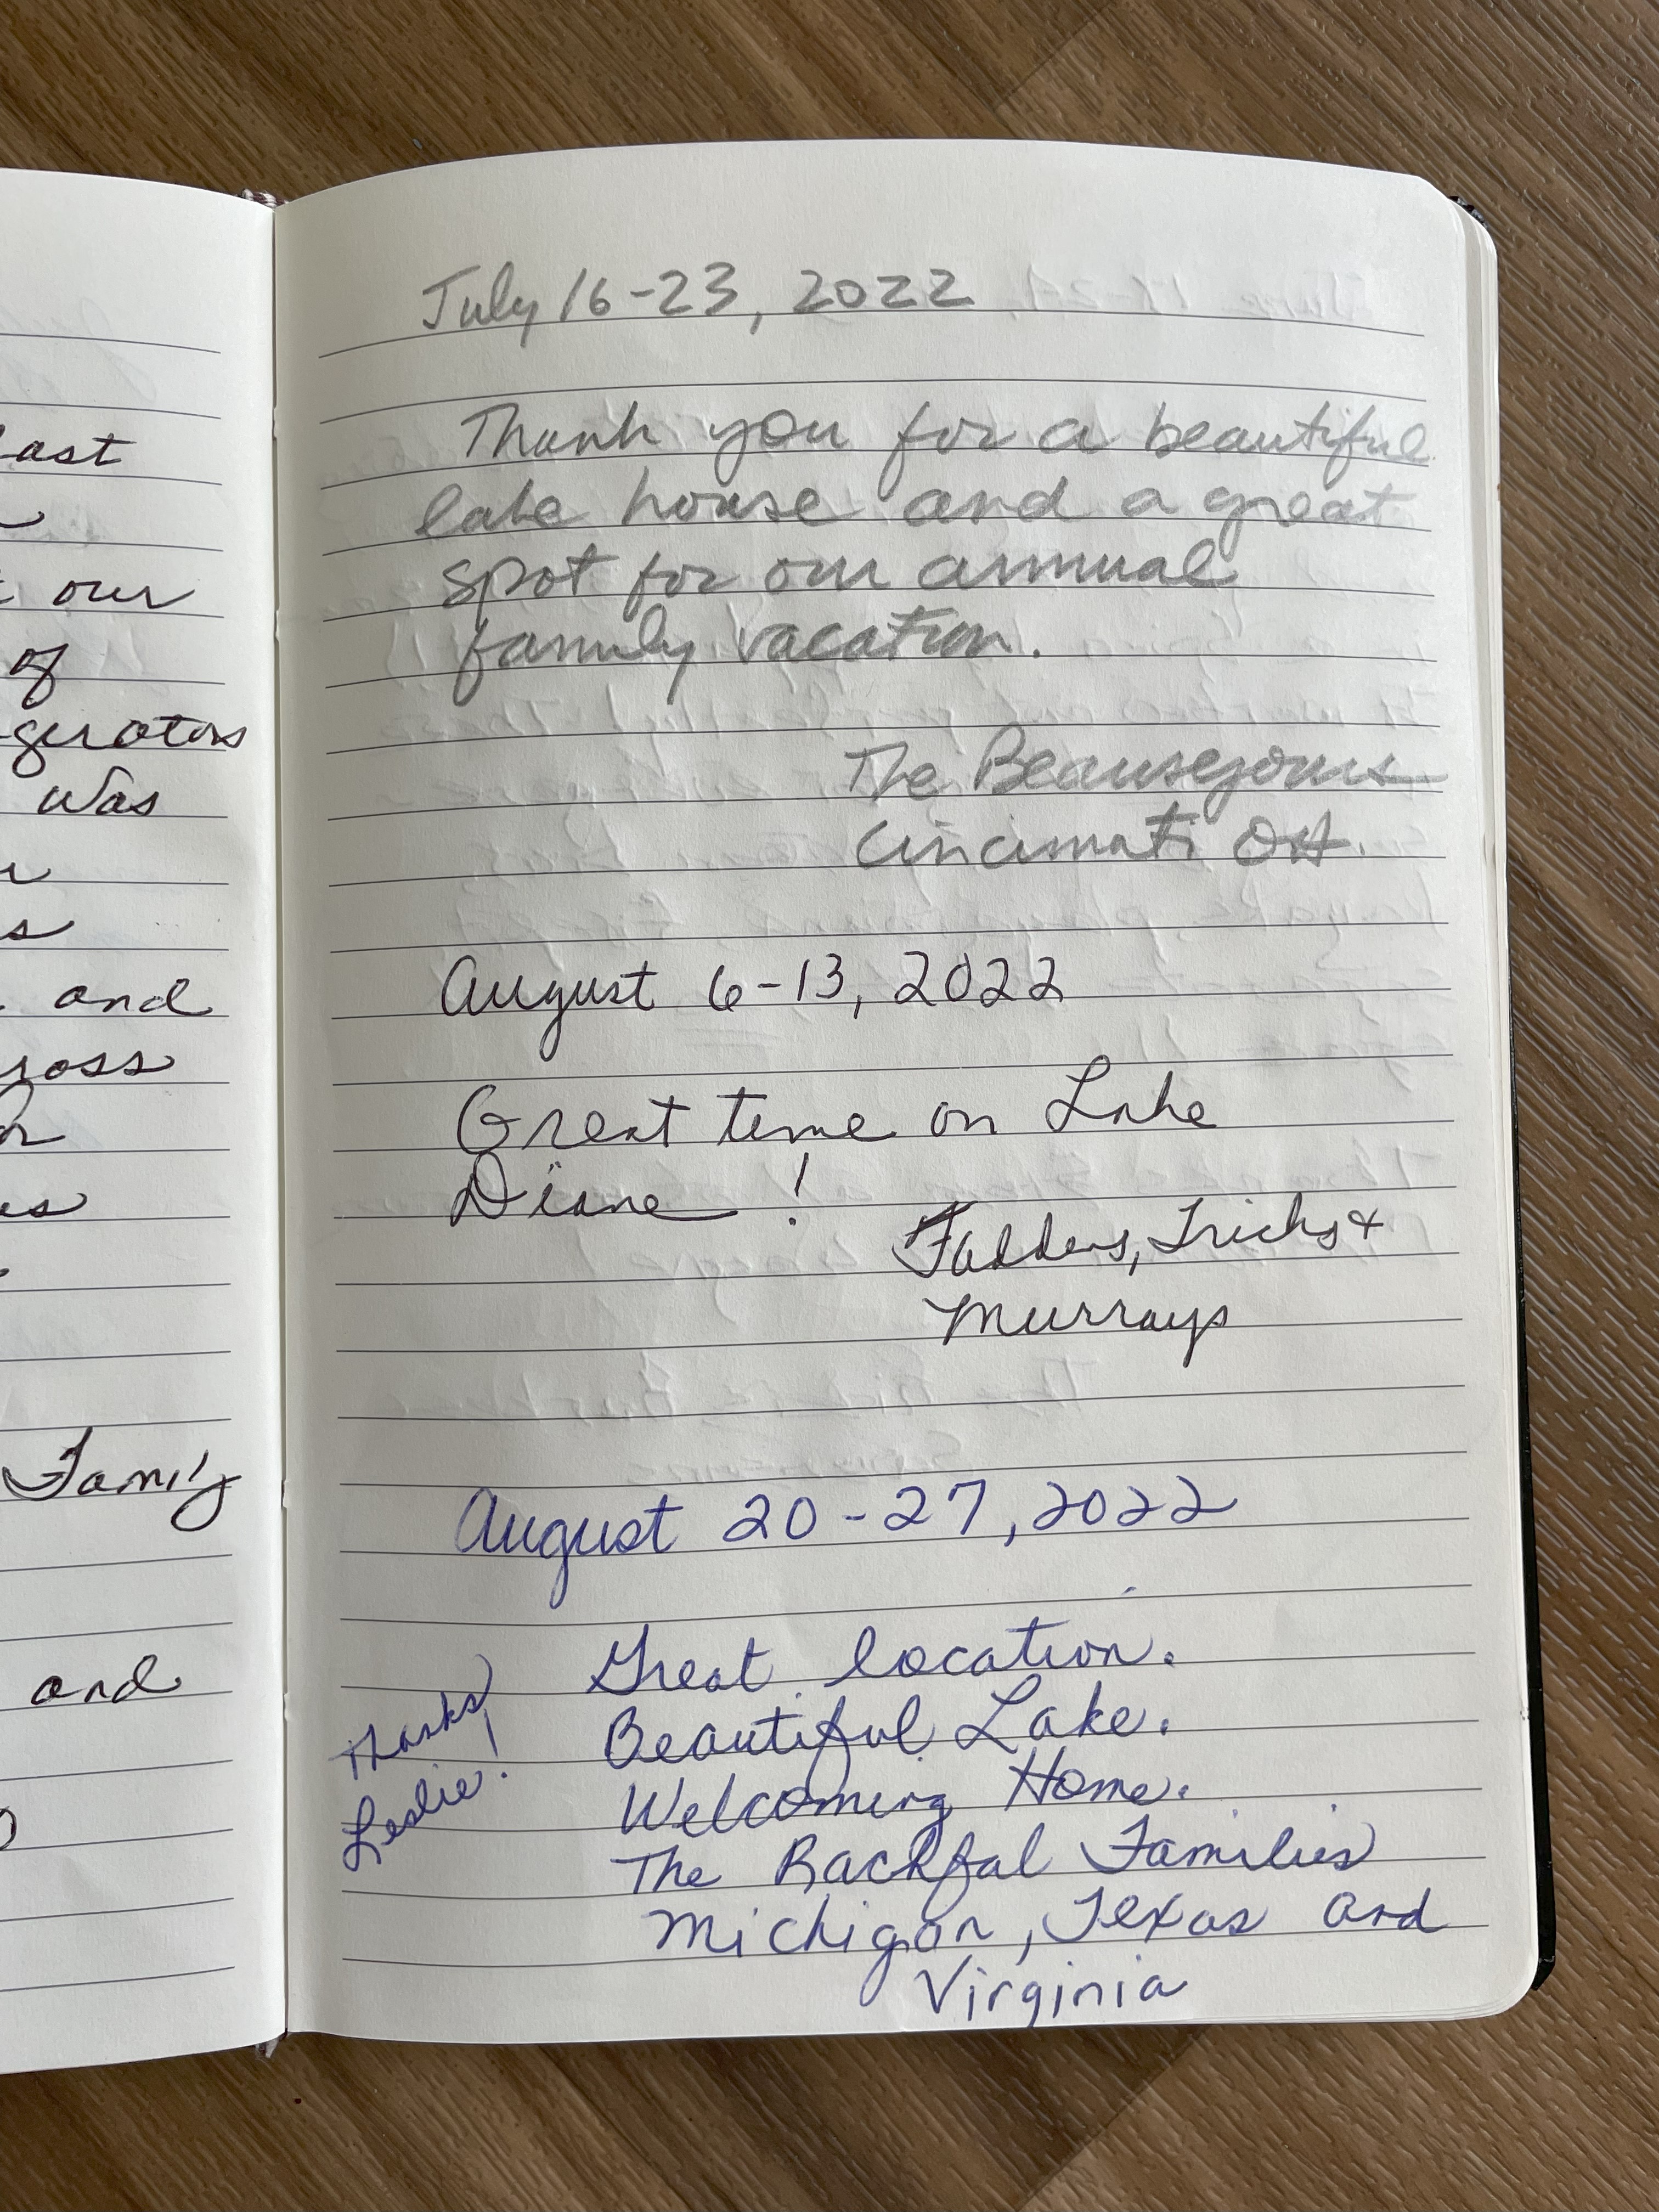 ast
our
of
gerators
was
and
ross
Family
and
July 16-23, 2022
Thank you for a beautiful
lake house and a great
spot for our annual
family vacation.
The Beausejours
Cincinnati OH.
August 6-13, 2022
Great time on Lake
Diane!
Faddens, Tricks &
Murrays
August 20-27, 2022
Great location.
Beautiful Lake.
Welcoming Home.
The Rackfal Families
Michigan, Texas and
Virginia
Thanks
Leslie!